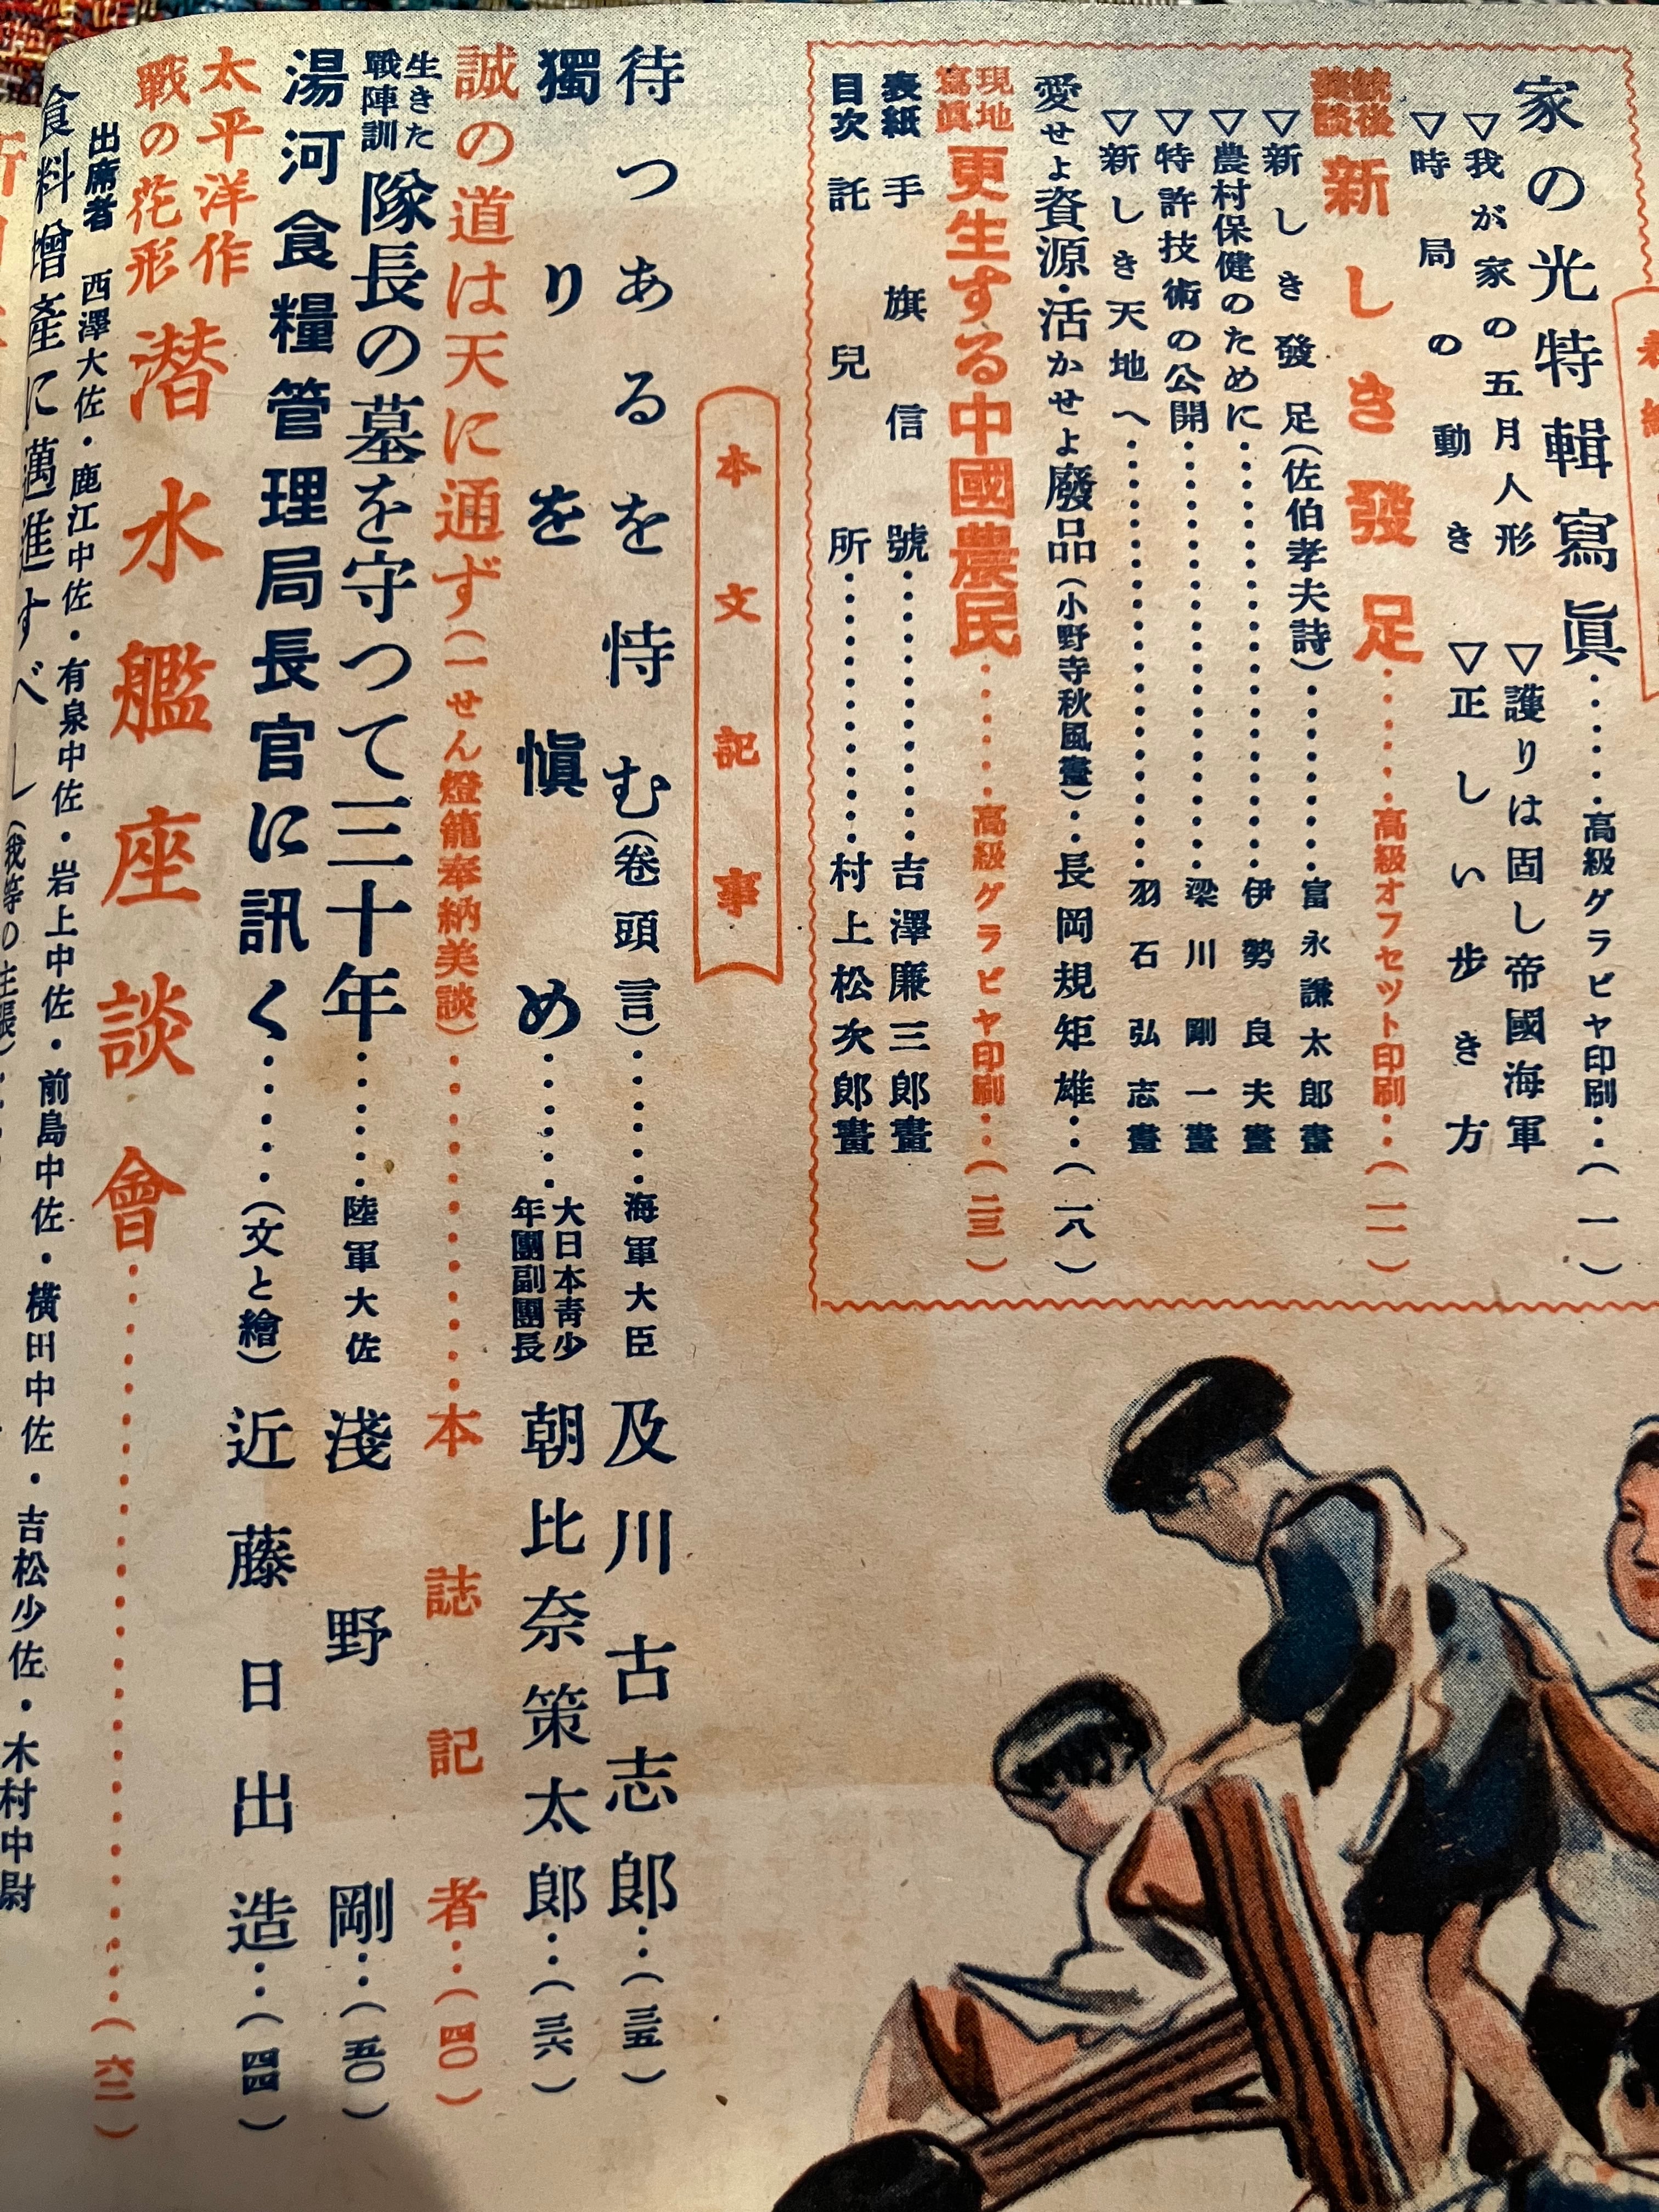 家の光特輯寫眞・・・・・高級グラビヤ印刷・・(一)
▽我が家の五月人形　▽護りは固し帝國海軍
▽時局の動き　▽正しい歩き方
銃後
新しき發足・・・・・高級オフセツト印刷・・(一一)
▽新しき發足(佐伯孝夫詩)・・・・・・・・富永謙太郎畫
▽農村保健のために・・・・・・・・・・・・・・伊勢良夫畫
▽特許技術の公開・・・・・・・・・・・・・・梁川剛一畫
▽新しき天地へ・・・・・・・・・・・・・・羽石弘志畫
愛せよ資源・活かせよ廢品(小野寺秋風畫)・・長岡規矩雄・・(一八)
現地寫眞 更生する中國農民・・・・・高級グラビヤ印刷・・(二三)
表紙 手旗信號・・・・・・・・・・・・吉澤廉三郎畫
目次 託兒所・・・・・・・・・・・・村上松次郎畫
本文記事
待つあるを恃む(卷頭言)・・・・・海軍大臣 及川古志郎・・(三五)
獨りを愼め・・・・・大日本靑少年團副團長 朝比奈策太郎・・(三六)
誠の道は天に通ず(一せん燈籠奉納美談)・・・・・・・・・・・本誌記者・・(四〇)
生きた戰陣訓 隊長の墓を守つて三十年・・・・・陸軍大佐 淺野剛・・(五〇)
湯河食糧管理局長官に訊く・・・・・(文と繪) 近藤日出造・・(四四)
太平洋作戰の花形 潜水艦座談會・・・・・・・・・・・・・・・・・・(六二)
出席者 西澤大佐・鹿江中佐・有泉中佐・岩上中佐・前島中佐・横田中佐・吉松少佐・木村中尉
食料增產に邁進すべし(我等の主張)